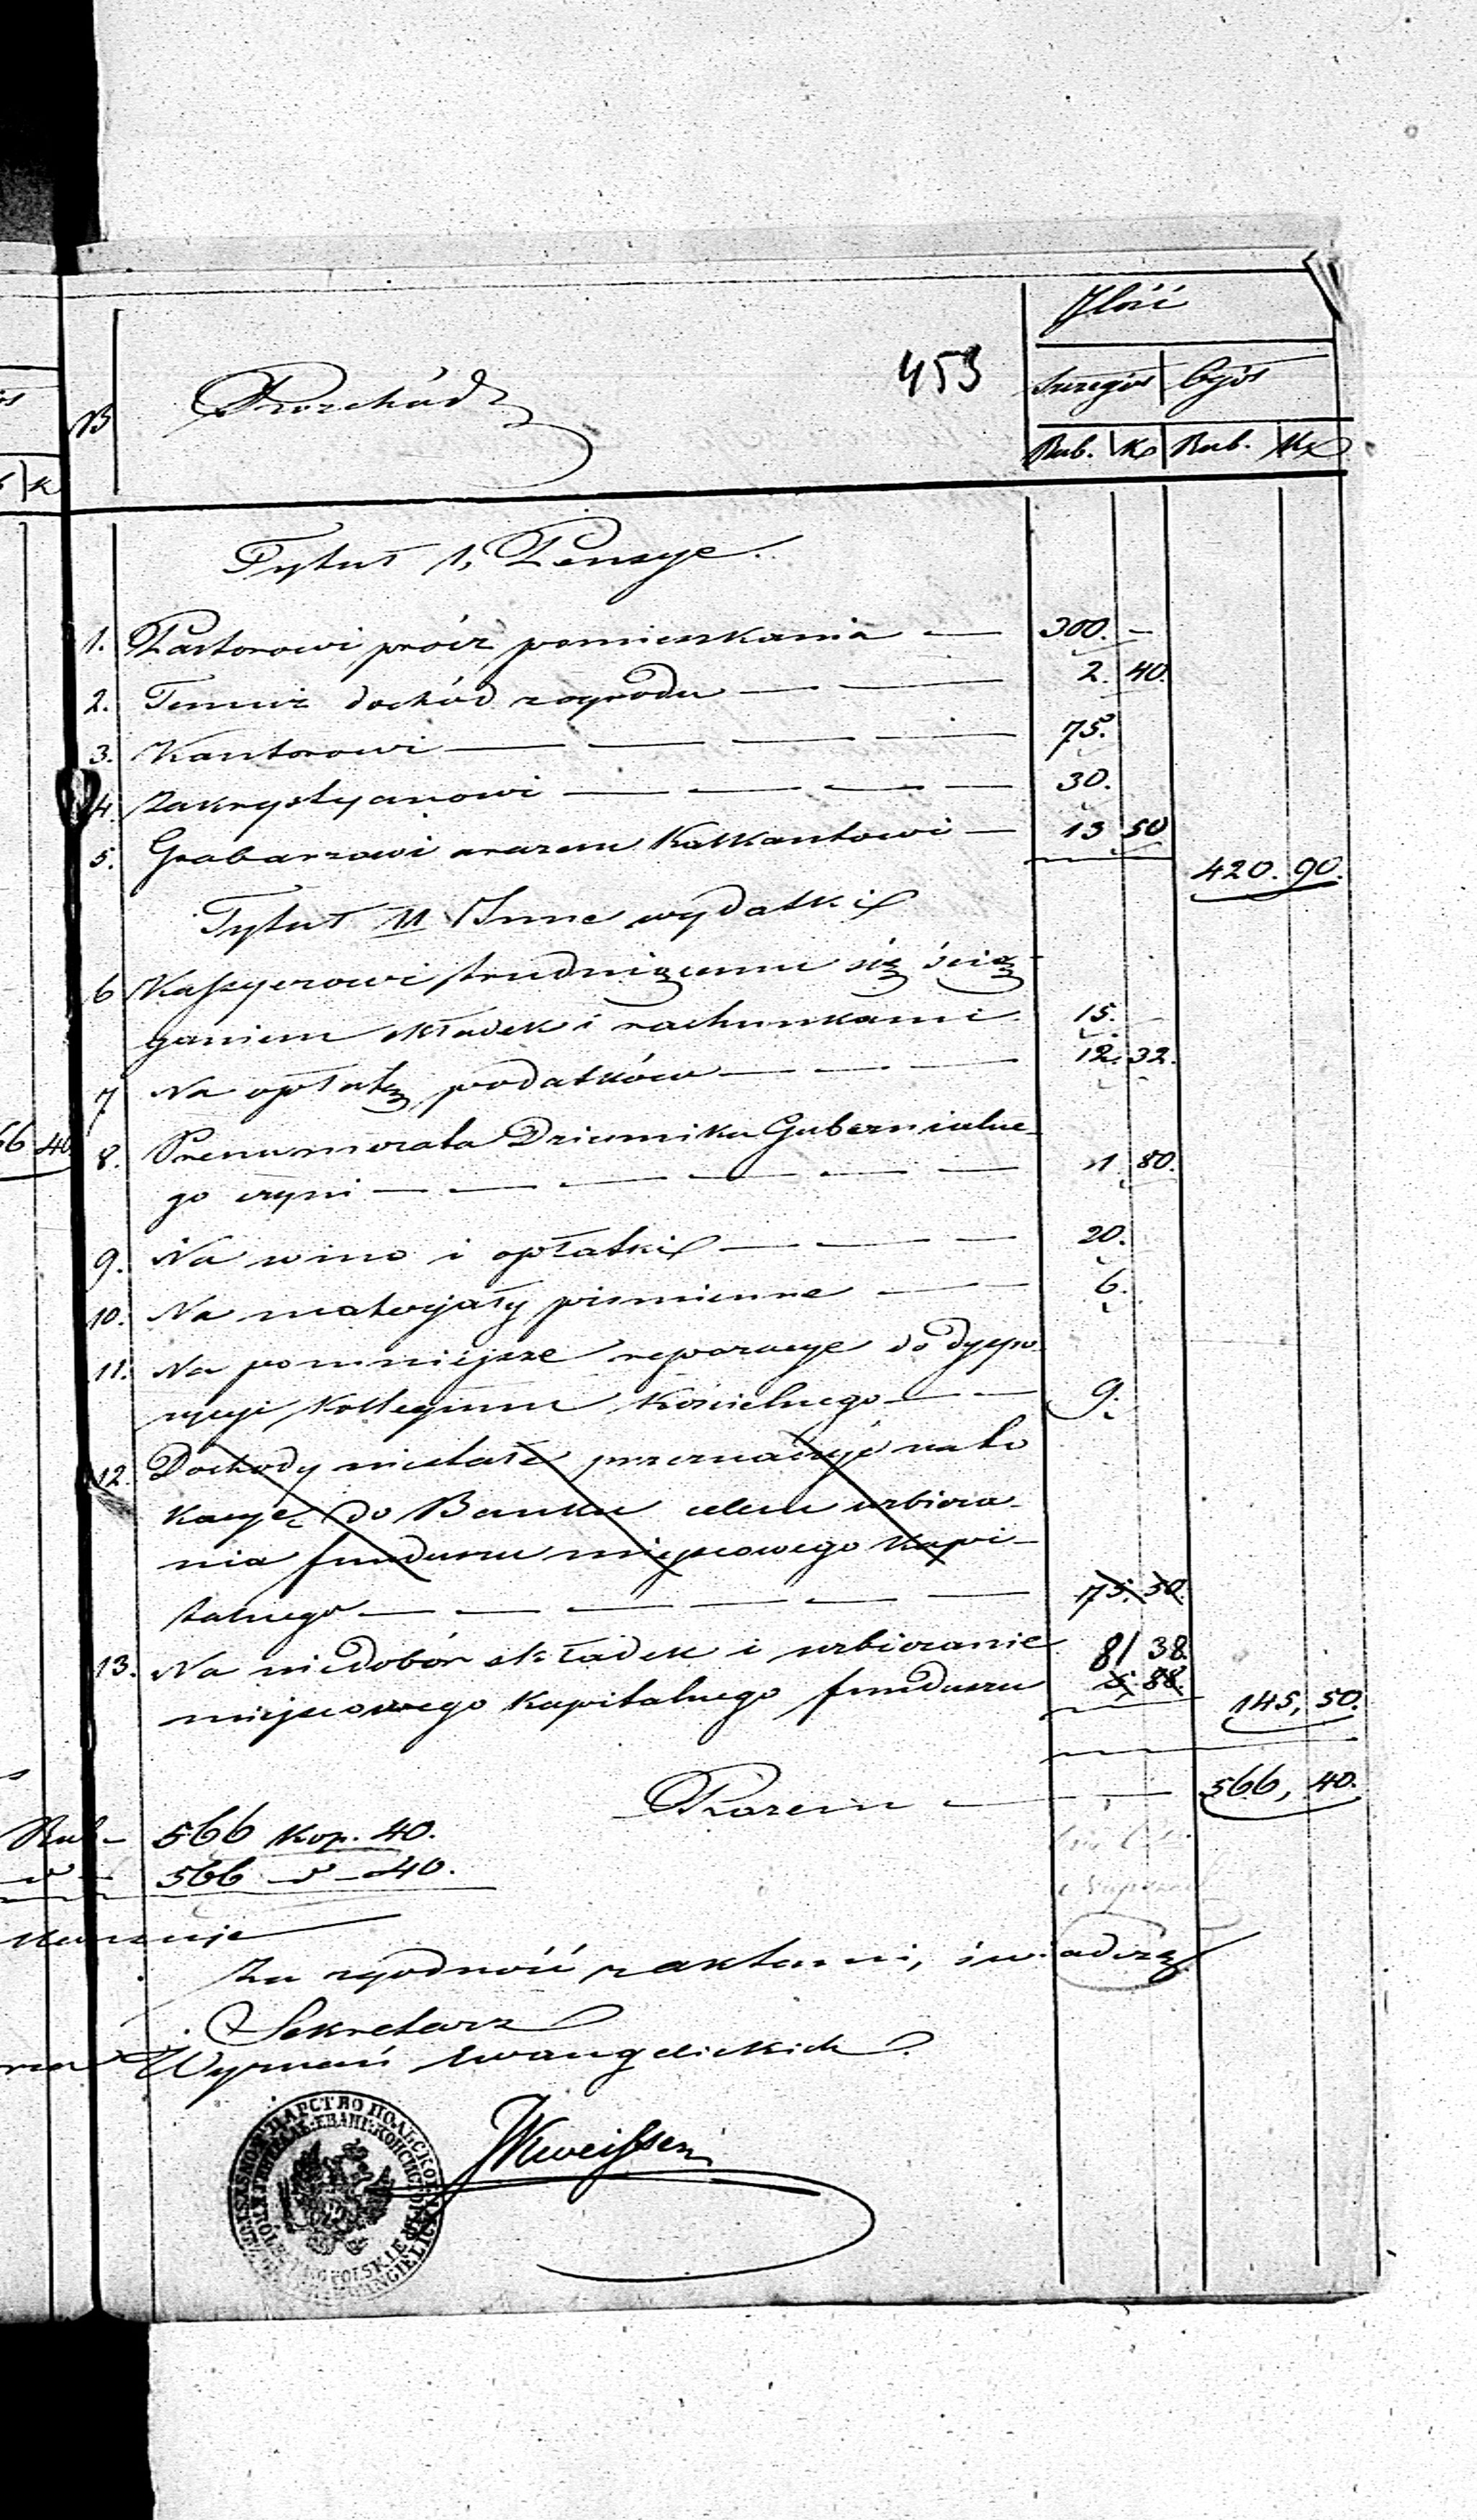 Ilość
453
Rozchód
szczegół ogół
№
Rub. Ko Rub. Ko
Tytuł 1, Pensye.
1. Pastorowi prócz pomieszkania — 300. —
2. Temuż dochód z ogrodu — — 2. 40.
3. Kantorowi — — — — 75.
4. Zakrystyanowi — — — — 30.
5. Grabarzowi a razem Kalkantowi — 13 50
420. 90.
Tytuł II Inne wydatki
6 Kassyerowi trudniącemu się ścią-
ganiem składek i rachunkami 15. —
7 Na opłatę podatków — — — 12. 32.
8. Prenumerata Dziennika Gubernialne-
go czyni — — — — — — 1 80.
9. Na wino i opłatki — — — 20.
10. Na materyały piśmienne — — 6.
11. Na pomniejsze reparacye do dyspo-
zycyi Kollegium Kościelnego — — 9.
12. Dochody niestałe przeznacza się na lo
kacyę do Banku celem uzbiera-
nia funduszu miejscowego kapi-
talnego — — — — — — 75. 50.
13. Na niedobór składek i uzbieranie 81 38.
miejscowego Kapitalnego funduszu 5. 88.
145, 50.
Razem — — 566, 40.
Rub — 566 Kop. 40.
566 — " — 40.
Za zgodność z aktami, świadczę
Sekretarz
Wyznań Ewangelickich.
JKweissen